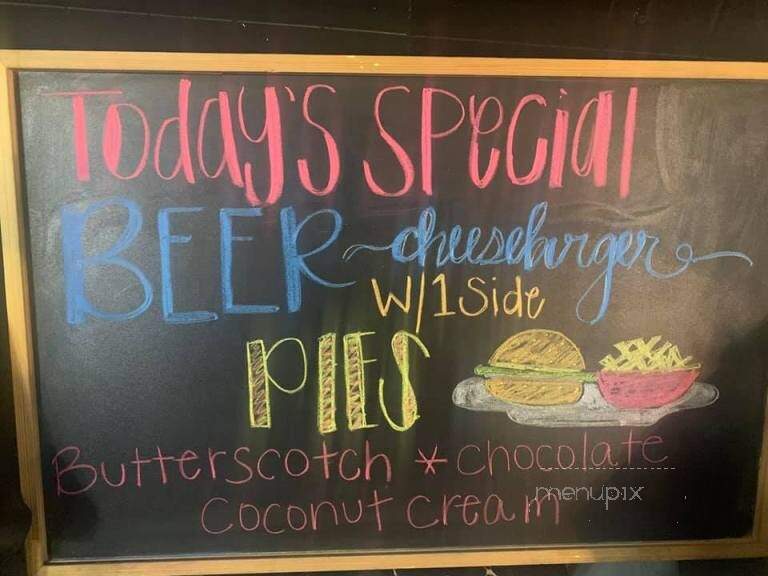 Today's Special
BEER cheeseburger
W/1 Side
PIES
Butterscotch * chocolate
coconut cream
menupix